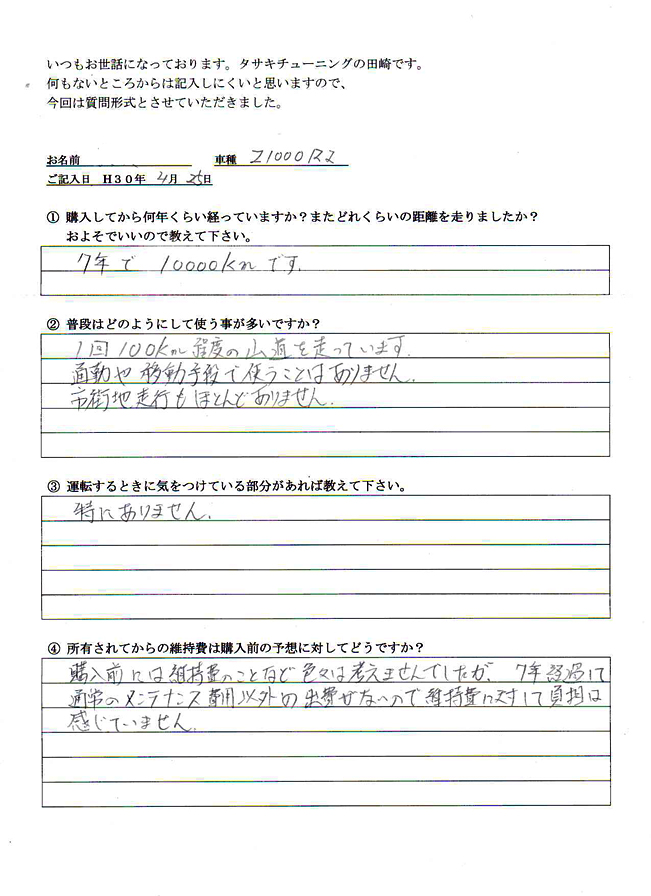 いつもお世話になっております。タサキチューニングの田崎です。
何もないところからは記入しにくいと思いますので、
今回は質問形式とさせていただきました。
お名前 車種 Z1000R2
ご記入日 H30年 4月 25日
① 購入してから何年くらい経っていますか？またどれくらいの距離を走りましたか？
およそでいいので教えて下さい。
7年で 10000kmです.
② 普段はどのようにして使う事が多いですか？
1回100km程度の山道を走っています.
通勤や移動手段で使うことはありません.
市街地走行もほとんどありません.
③ 運転するときに気をつけている部分があれば教えて下さい。
特にありません.
④ 所有されてからの維持費は購入前の予想に対してどうですか？
購入前には維持費のことなど色々は考えませんでしたが、7年経過にて
通常のメンテナンス費用以外の出費がないので維持費に対して負担は
感じていません.